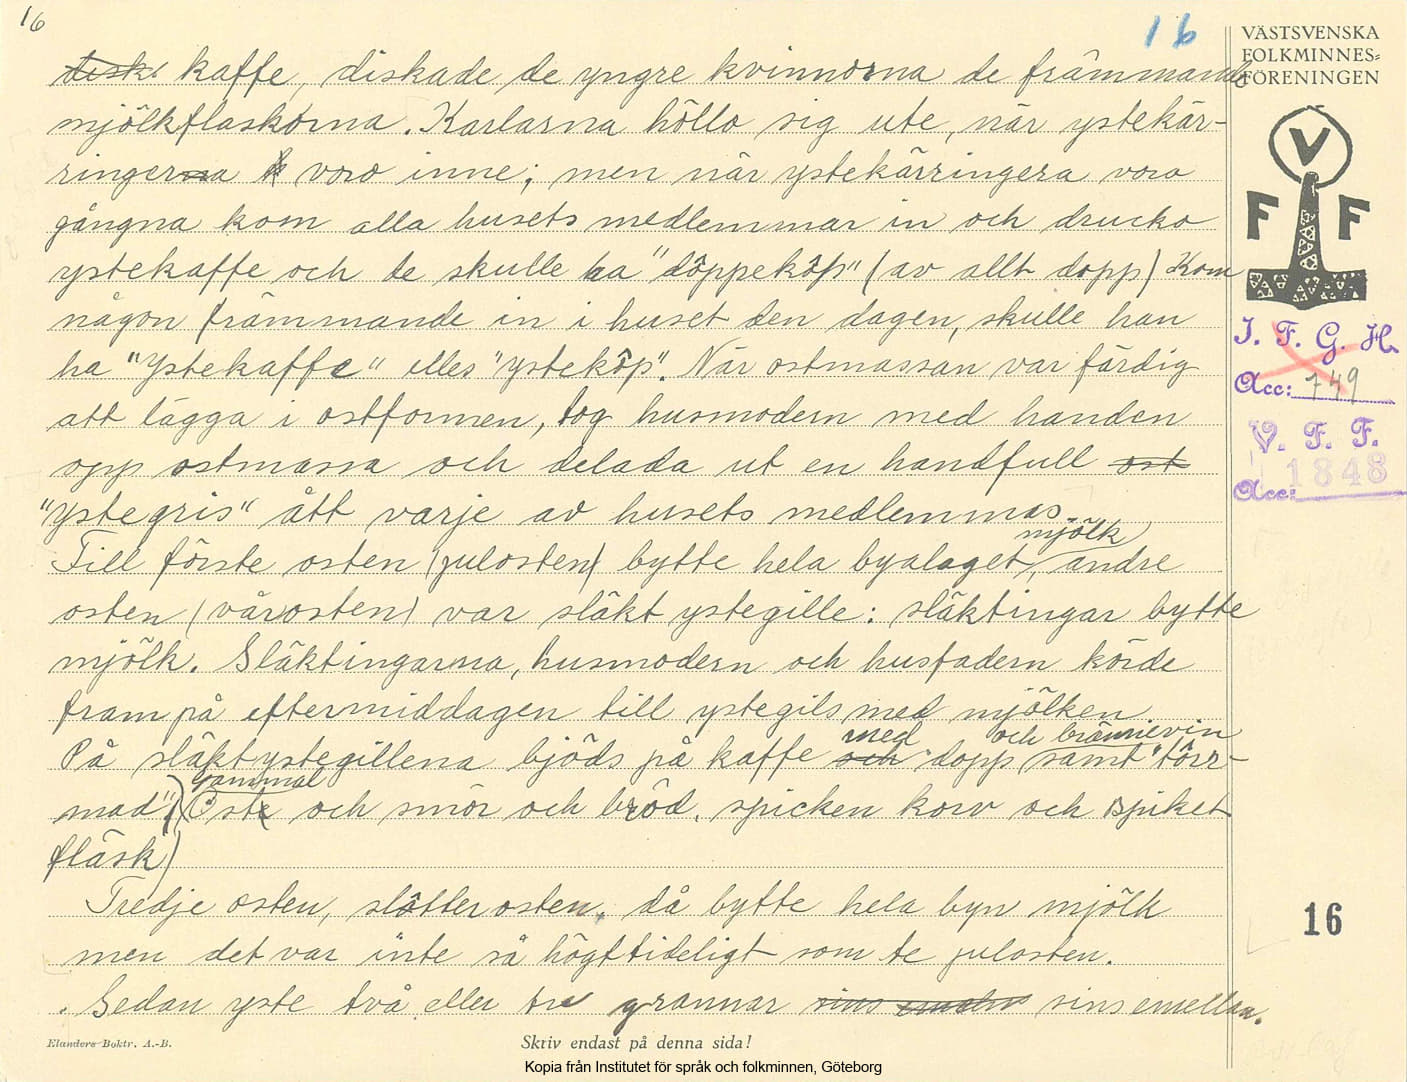 16
16
VÄSTSVENSKA
FOLKMINNES=
FÖRENINGEN
disk. kaffe, diskade de yngre kvinnorna de främmande
mjölkflaskorna. Karlarna höllo sig ute, när ystekär-
ringerna voro inne; men när ystekärringera voro
gångna kom alla husets medlemmar in och drucko
ystekaffe och de skulle ha "döppeköp" (av allt dopp) Kom
någon främmande in i huset den dagen, skulle han
ha "Ystekaffe" elles "ysteköp". När ostmassan var färdig
att lägga i ostformen, tog husmodern med handen
opp ostmassa och delada ut en handfull ost
"ystegris" ått varje av husets medlemmas.
Till förste osten (julosten) bytte hela byalaget mjölk, andre
osten (vårosten) var släkt ystegille: släktingar bytte
mjölk. Släktingarna, husmodern och husfadern körde
fram på eftermiddagen till ystegils med mjölken.
På släktystegillena bjöds på kaffe och med dopp och brännevin samt "törr-
mad". (gammal Ost och smör och bröd, spicken korv och spiket
fläsk)
Tredje osten, slåtterosten, då bytte hela byn mjölk
men det var inte så högttideligt som te julosten.
Sedan yste två eller tre grannar sins emellan sins emellan.
V
F F
I. F. G. H.
Acc: 749
V. F. F.
1848
Acc:
16
Elanders Boktr. A.-B.
Skriv endast på denna sida!
Kopia från Institutet för språk och folkminnen, Göteborg